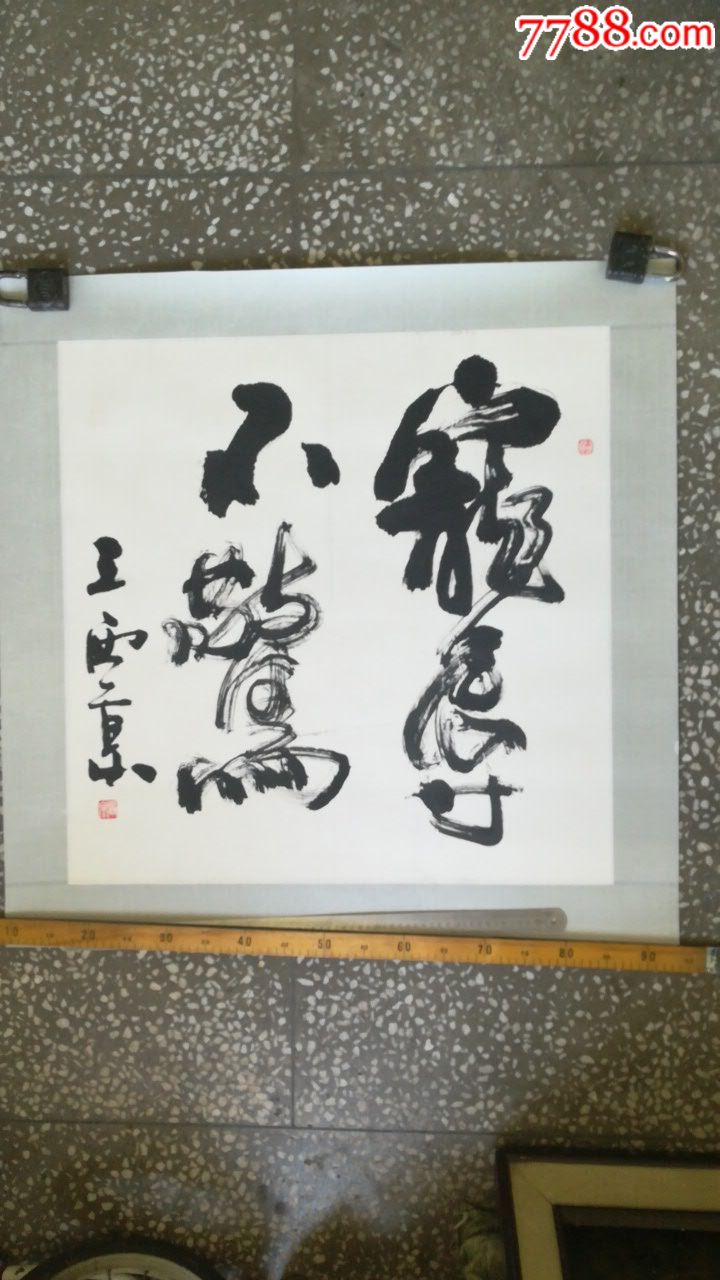 7788.com
寵辱
不驚
10 20 30 40 50 60 70 80 90